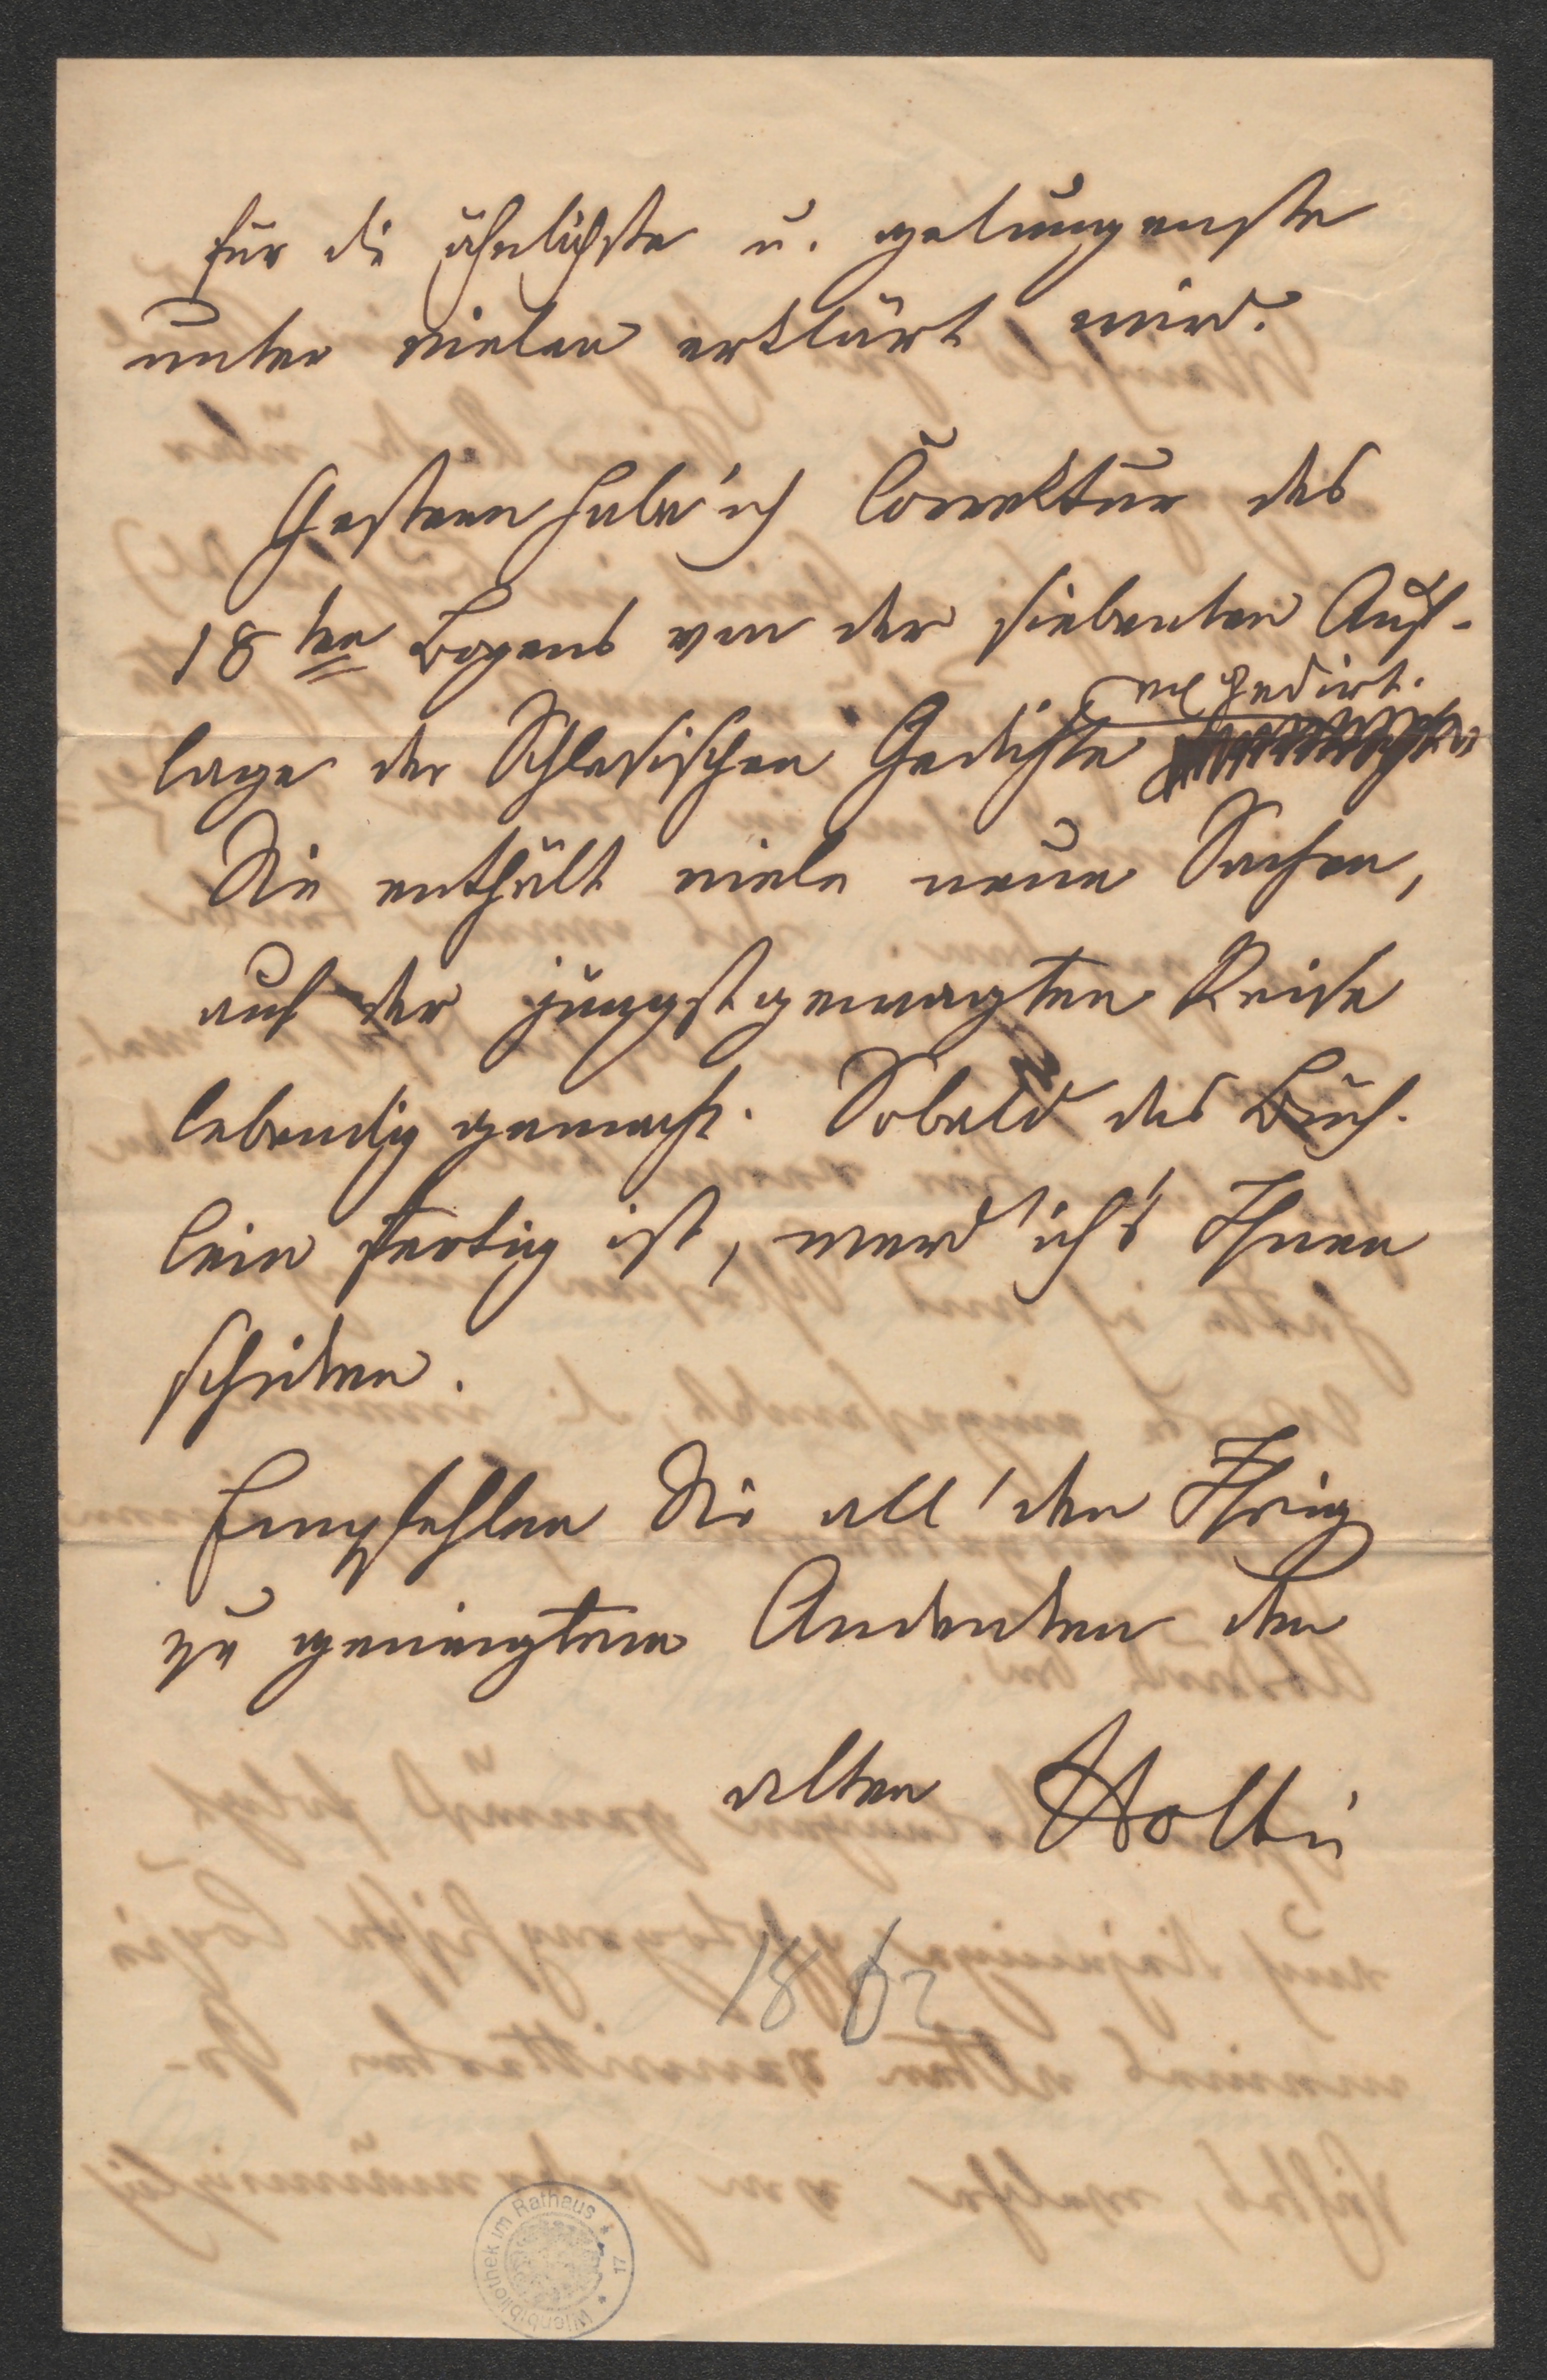 für die ähnlichste u. gelungenste
unter vielen erklärt wird.
Gestern hab' ich Correktur des
18ten Bogens von der siebenten Auf-
expedirt.
lage der Schlesischen Gedichte
Sie enthält viele neue Sachen,
auf der jüngst gewagten Reise
lebendig gemacht. Sobald das Büch-
lein fertig ist, werd' ich's Ihnen
schicken.
Empfehlen Sie all' den Ihrig
zu geneigtem Andenken den
alten Holtei
1862
Wienbibliothek im Rathaus